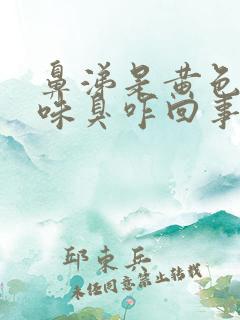 鼻涕是黄色
味臭咋回事
邱东兵
未经同意禁止转载